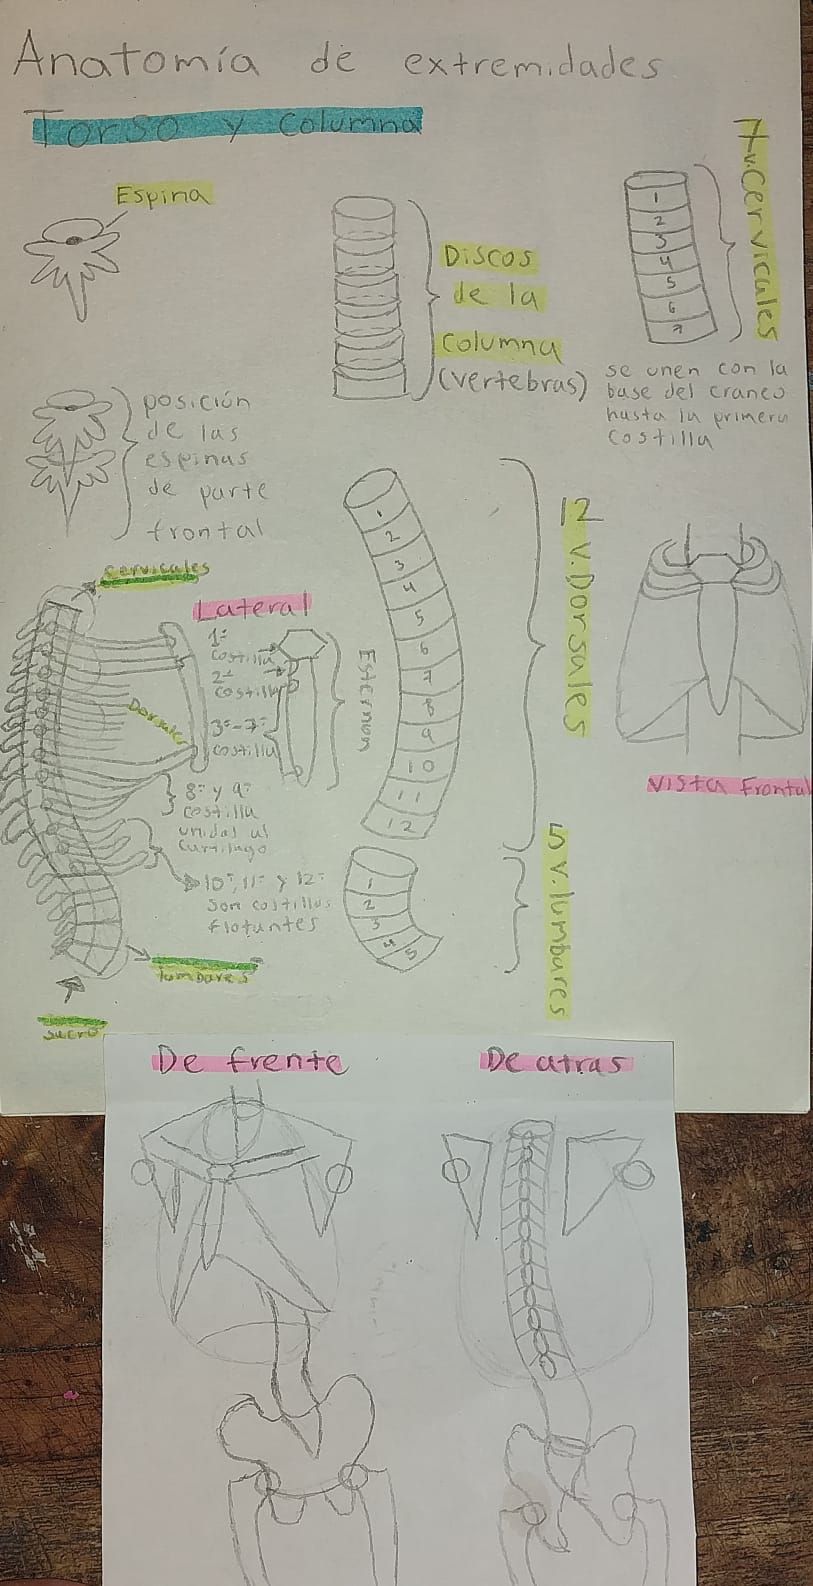 Anatomía de extremidades
Torso y columna
Espina
Discos
de la
columna
(vertebras)
1
2
3
4
5
6
7
7 v. cervicales
se unen con la
base del craneo
hasta la primera
costilla
posición
de las
espinas
de parte
frontal
1
2
3
4
5
6
7
8
9
10
11
12
12 v. Dorsales
cervicales
Lateral
1º
costilla
2º
costilla
3º-7º
costilla
Esternon
Dorsales
8º y 9º
costilla
unidas al
cartilago
10º, 11º y 12º
son costillas
flotantes
1
2
3
4
5
5 v. lumbares
lumbares
sacro
Vista Frontal
De frente
De atras